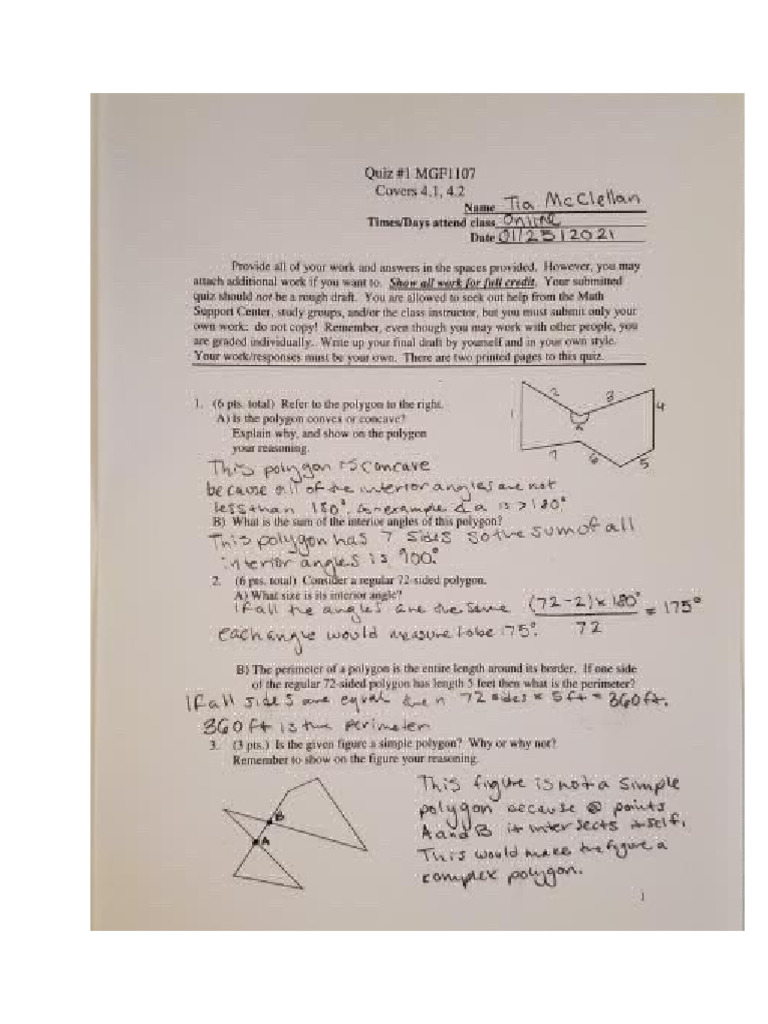 Quiz #1 MGF1107
Covers 4.1, 4.2
Name Tia McClellan
Times/Days attend class Online
Date 01/25/2021
Provide all of your work and answers in the spaces provided. However, you may
attach additional work if you want to. Show all work for full credit. Your submitted
quiz should not be a rough draft. You are allowed to seek out help from the Math
Support Center, study groups, and/or the class instructor, but you must submit only your
own work: do not copy! Remember, even though you may work with other people, you
are graded individually. Write up your final draft by yourself and in your own style.
Your work/responses must be your own. There are two printed pages to this quiz.
1. (6 pts. total) Refer to the polygon to the right.
A) Is the polygon convex or concave?
Explain why, and show on the polygon
your reasoning.
1 2 3 4 5 6 7 a
This polygon is concave
because all of the interior angles are not
less than 180°, as example ∠a is > 180°
B) What is the sum of the interior angles of this polygon?
This polygon has 7 sides so the sum of all
interior angles is 900°.
2. (6 pts. total) Consider a regular 72-sided polygon.
A) What size is its interior angle?
If all the angles are the same (72-2) x 180° / 72 = 175°
each angle would measure to be 175°.
B) The perimeter of a polygon is the entire length around its border. If one side
of the regular 72-sided polygon has length 5 feet then what is the perimeter?
If all sides are equal then 72 sides x 5 ft = 360 ft.
360 ft is the perimeter
3. (3 pts.) Is the given figure a simple polygon? Why or why not?
Remember to show on the figure your reasoning.
B
A
This figure is not a simple
polygon because @ points
A and B it intersects itself.
This would make the figure a
complex polygon.
1